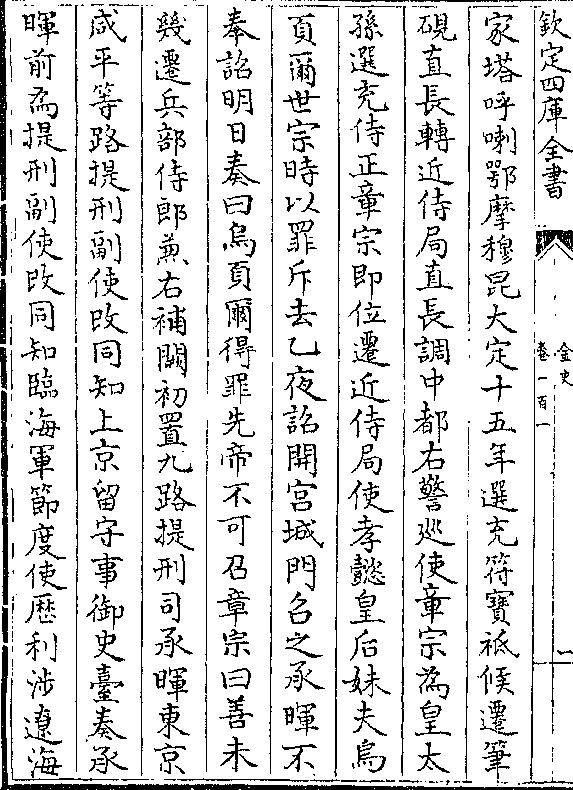 欽定四庫全書
金史
卷一百一
一
家塔呼喇鄂摩穆昆大定十五年選充符寶祗候遷筆
硯直長轉近侍局直長調中都右警巡使章宗為皇太
孫選充侍正章宗即位遷近侍局使孝懿皇后妹夫烏
頁爾世宗時以罪斥去乙夜詔開宫城門召之承暉不
奉詔明日奏曰烏頁爾得罪先帝不可召章宗曰善未
幾遷兵部侍郎兼右補闕初置九路提刑司承暉東京
咸平等路提刑副使改同知上京留守事御史臺奏承
暉前為提刑副使改同知臨海軍節度使歴利涉遼海